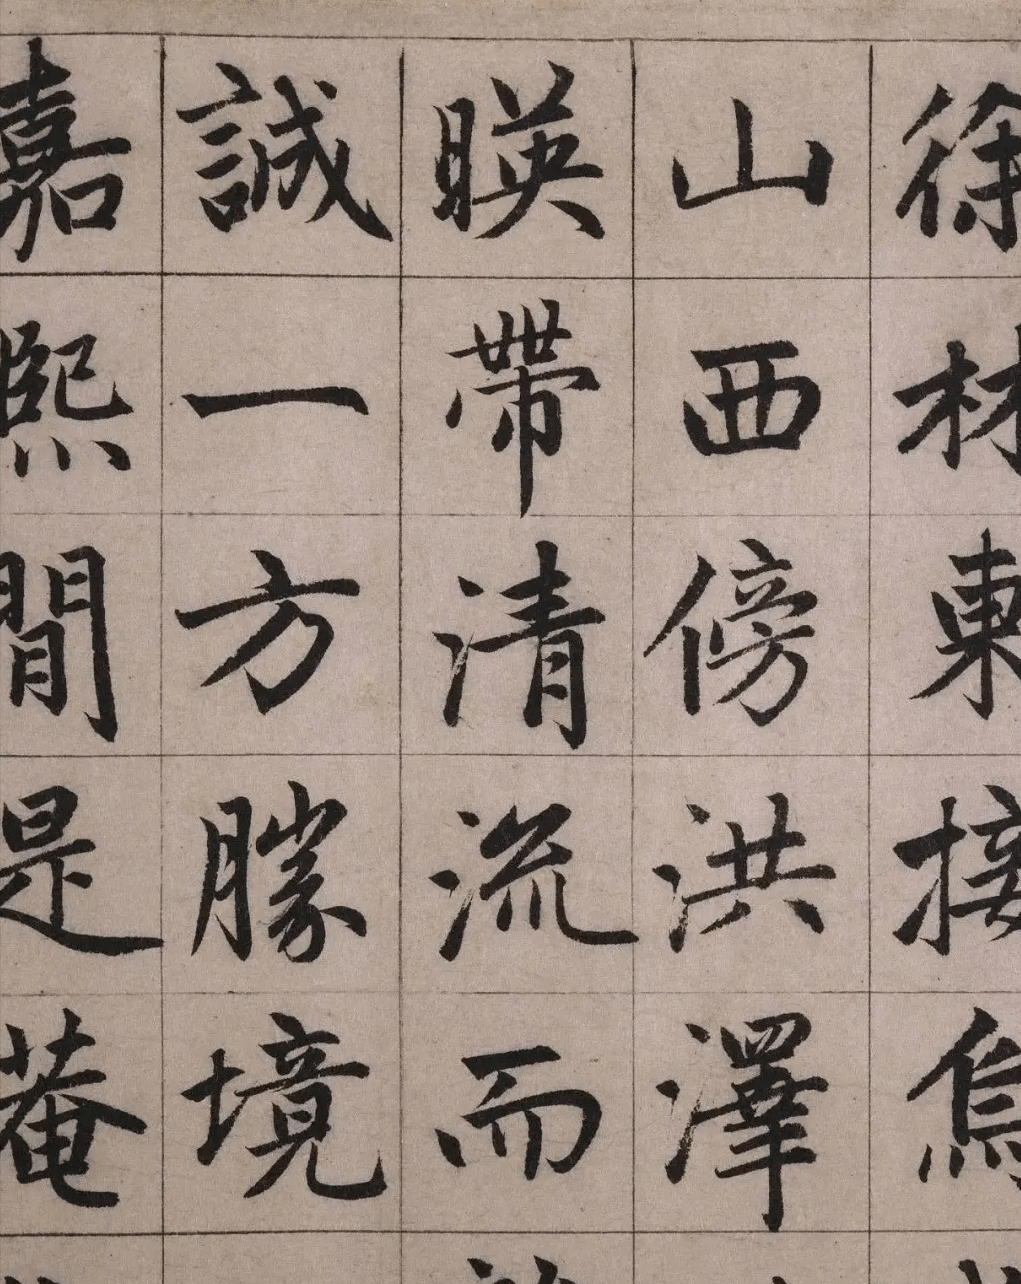 徐材東接烏
山西傍洪澤
暎帶清流而
誠一方勝境
嘉熙間是菴